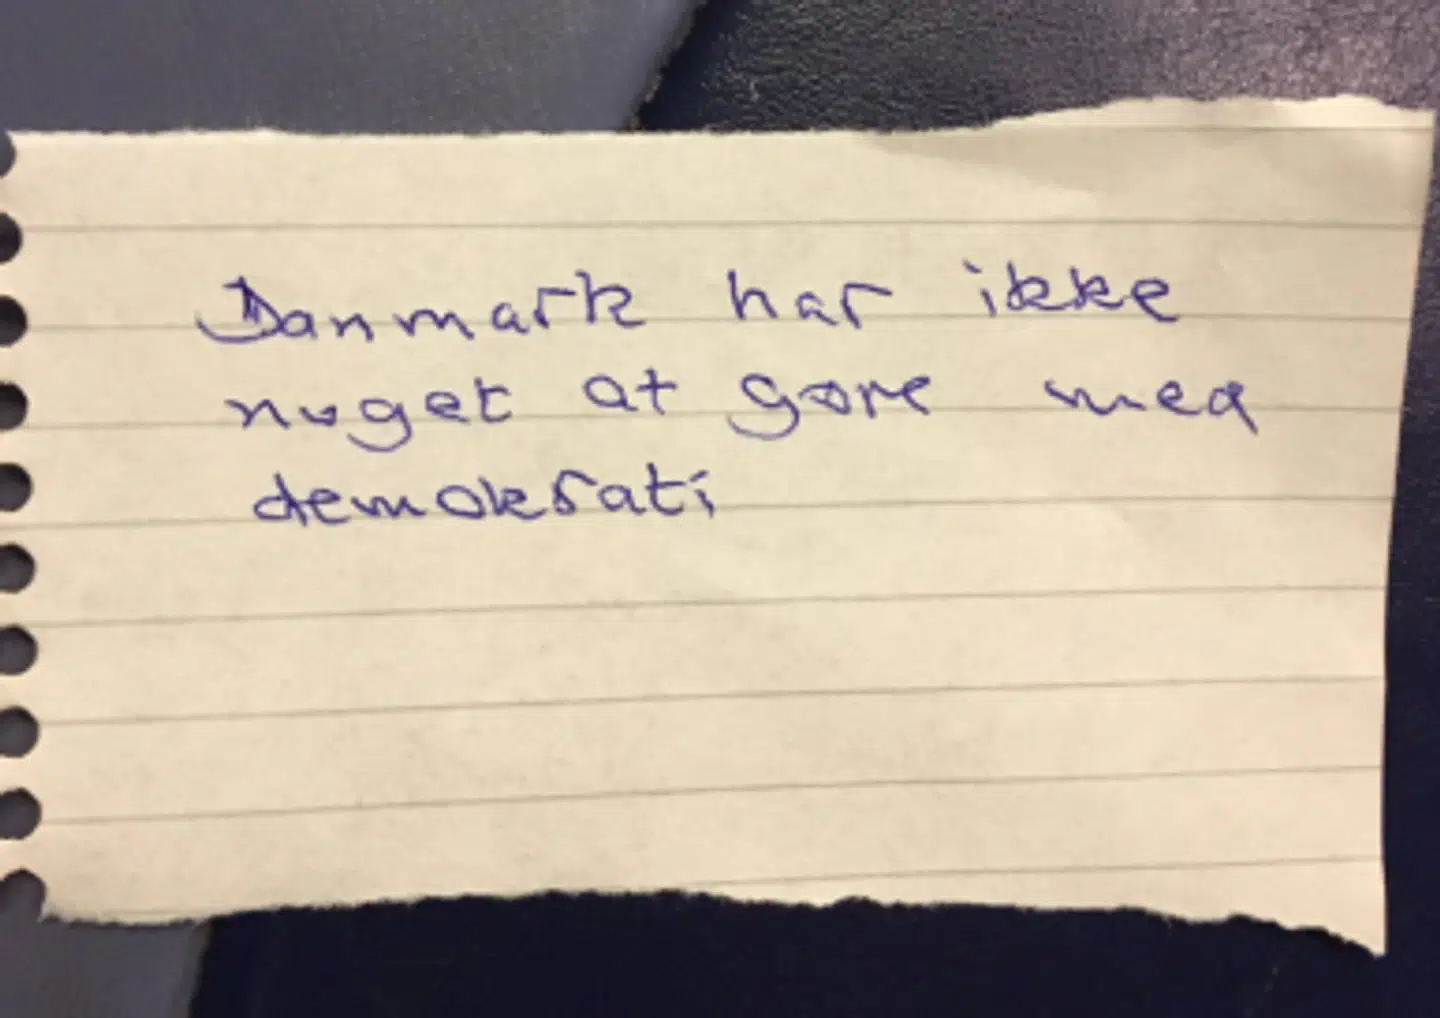 Danmark har ikke
nuget at gøre med
demokrati